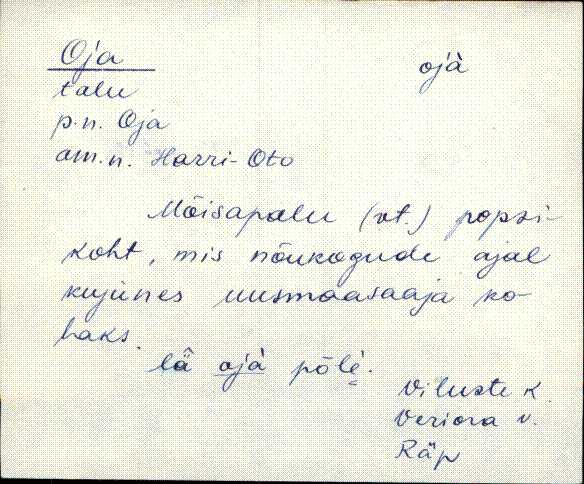 Oja
ojà
talu
p.n. Oja
am.n. Harri-Oto
Mõisapalu (vt.) popsi-
koht, mis nõukogude ajal
kujunes uusmaasaaja ko-
haks.
lä ojà põlè.
Viluste k.
Veriora v.
Räp